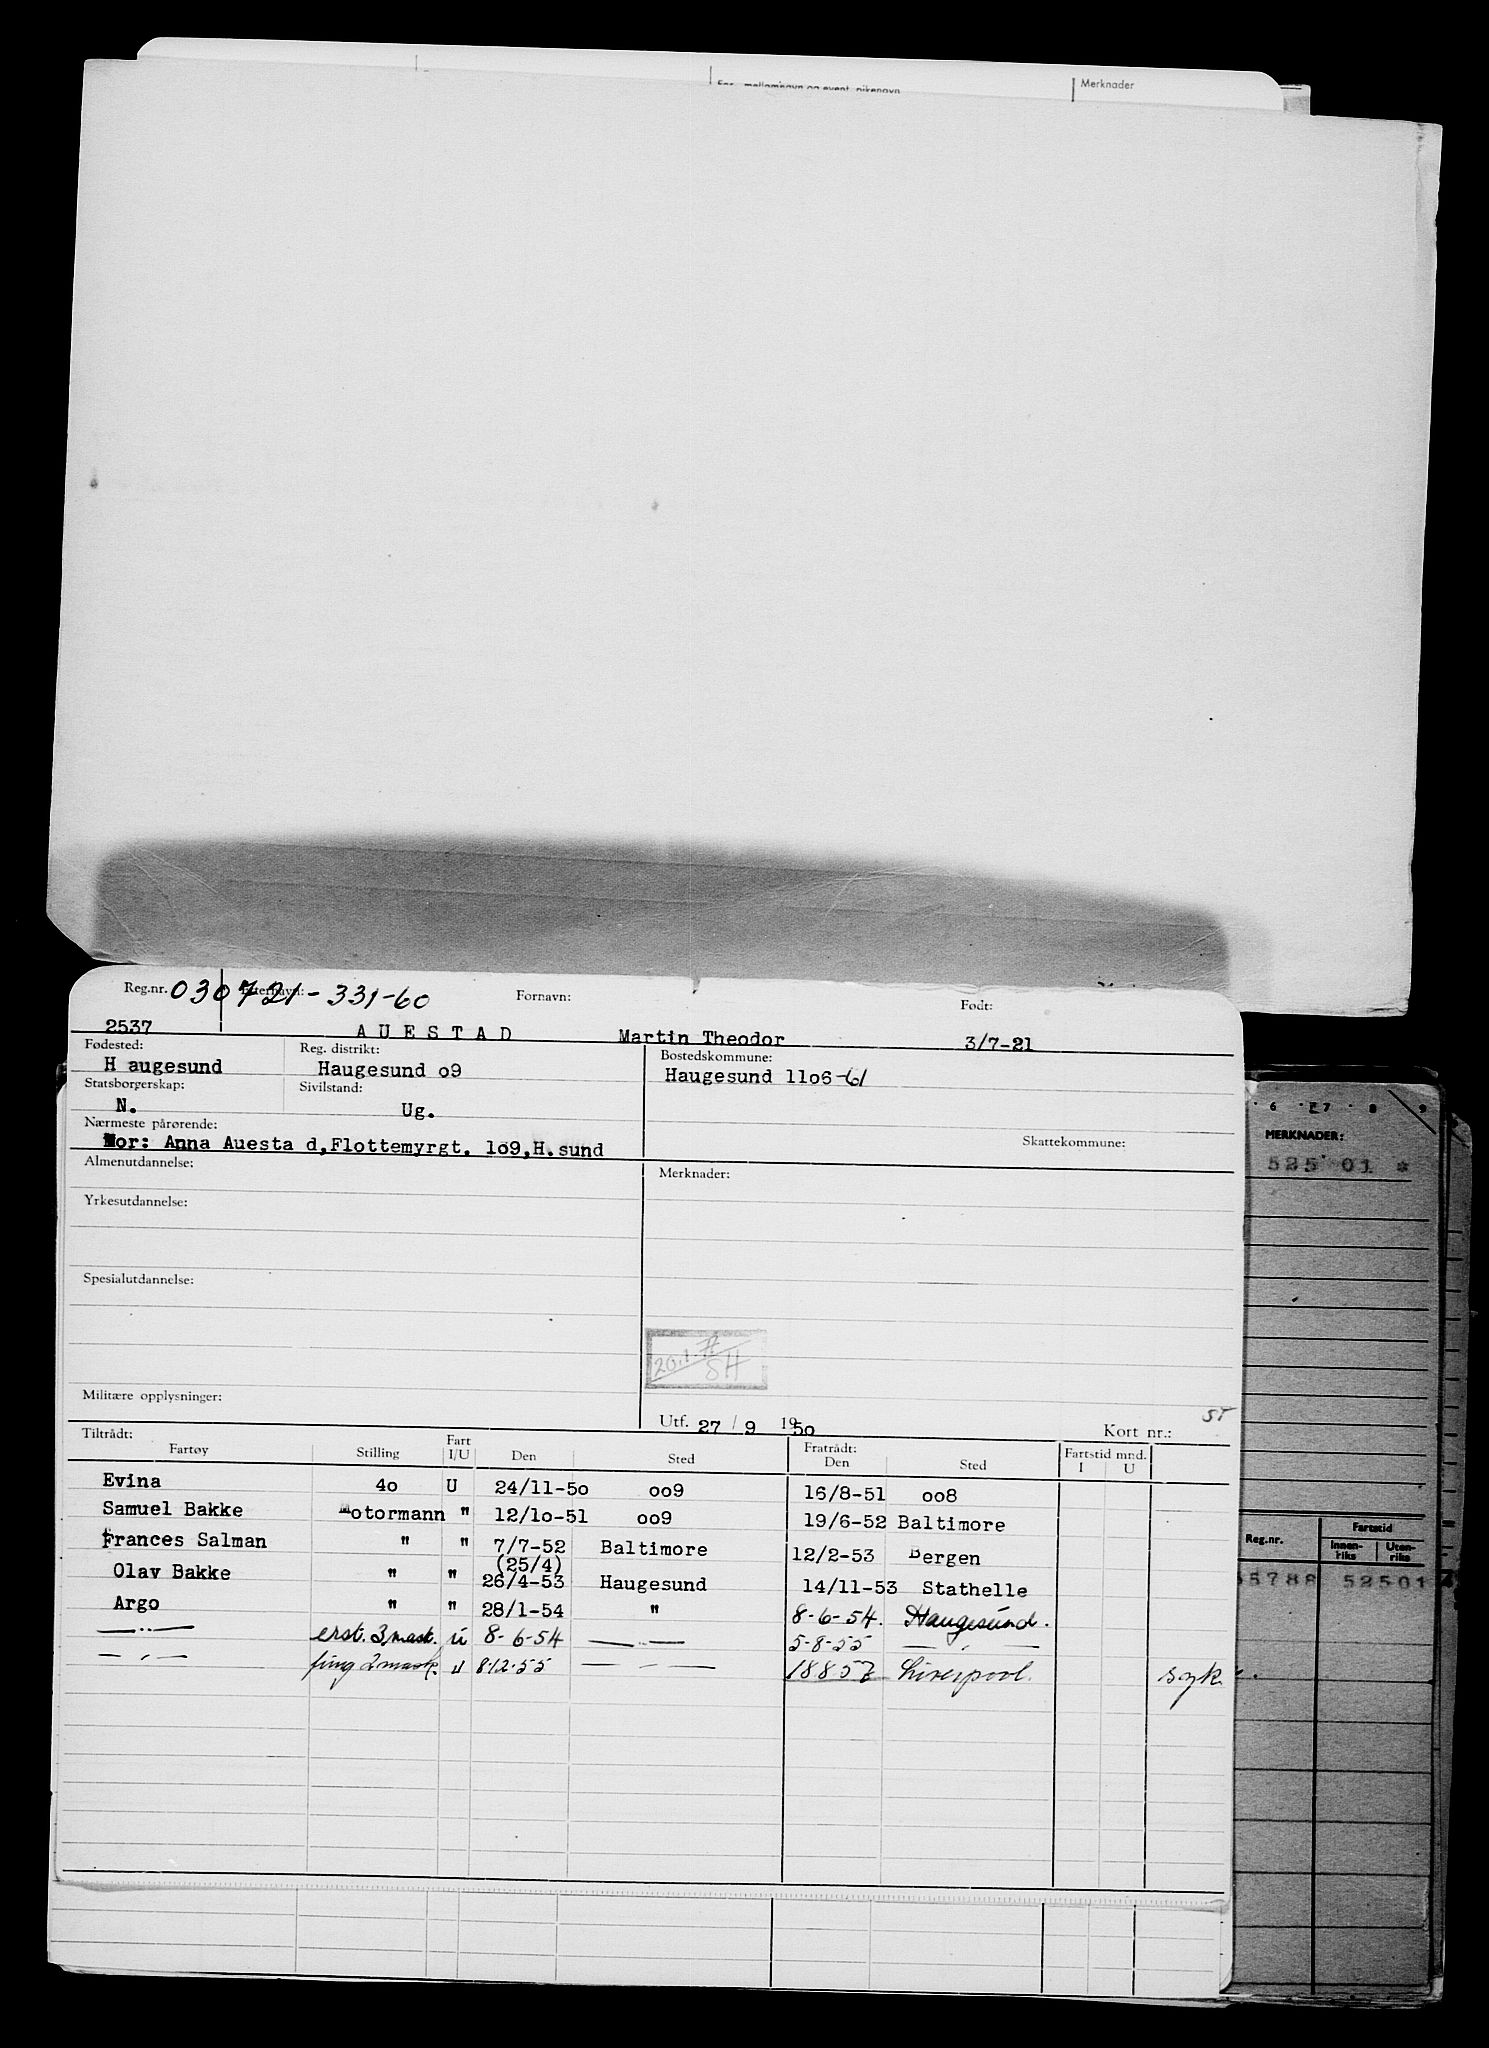 Merknader
Reg.nr. 030721-331-60 Etternavn: Fornavn: Født:
2537 AUESTAD Martin Theodor 3/7-21
Fødested: Reg. distrikt: Bostedskommune:
H augesund Haugesund o9 Haugesund 11o6-61
Statsborgerskap: Sivilstand:
N. Ug.
Nærmeste pårørende: Skattekommune:
Mor: Anna Auesta d,Flottemyrgt. 1o9,H.sund
Almenutdannelse: Merknader:
Yrkesutdannelse:
Spesialutdannelse:
20.1.
SH
Militære opplysninger:
Utf. 27 / 9 1950 Kort nr.:
Tiltrådt: Fratrådt: Fartstid mnd.
Fartøy Stilling Fart I/U Den Sted Den Sted I U
Evina 4o U 24/11-5o oo9 16/8-51 oo8
Samuel Bakke Motormann " 12/1o-51 oo9 19/6-52 Baltimore
Frances Salman " " 7/7-52 Baltimore 12/2-53 Bergen
(25/4)
Olav Bakke " " 26/4-53 Haugesund 14/11-53 Stathelle
Argo " " 28/1-54 " 8-6-54. Haugesund.
—..— erst. 3 mask. u 8-6-54 —..— 5-8-55 — , —
— , — fung 2 mask. u 8.12.55 — , — 18857 Liverpool. syk.
6 7 8 9
MERKNADER:
525 01 *
Reg.nr. Fartstid
Innen-riks Uten-riks
5788 52501